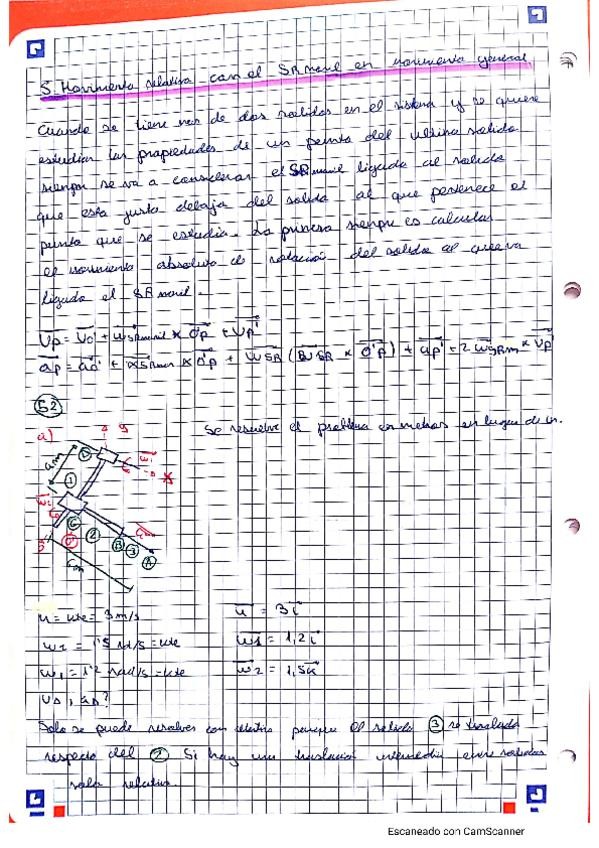 5. Movimiento relativo con el SRmovil en movimiento general
Cuando se tiene mas de dos solidos en el sistema y se quiere
estudiar las propiedades de un punto del ultimo solido
siempre se va a considerar el SRmovil ligado al solido
que esta justo debajo del solido al que pertenece el
punto que se estudia. Lo primero siempre es calcular
el movimiento absoluto de rotación del solido al que va
ligado el SRmovil.
Vp = Vo' + ωSRmovil × O'P + Vp'
ap = ao' + αSRmov × O'P + ωSR (ωSR × O'P) + ap' + 2 ωSRm × Vp'
52
Se resuelve el problema en metros en lugar de in.
a)
u = cte = 3 m/s
u = 3i
ω2 = 1'5 rad/s = cte
ω1 = 1,2i
ω1 = 1'2 rad/s = cte
ω2 = 1,5k
Solo se puede resolver con relativo porque el solido 3 se traslada
respecto del 2 Si hay una traslación intermedia entre solidos
solo relativo.
Escaneado con CamScanner